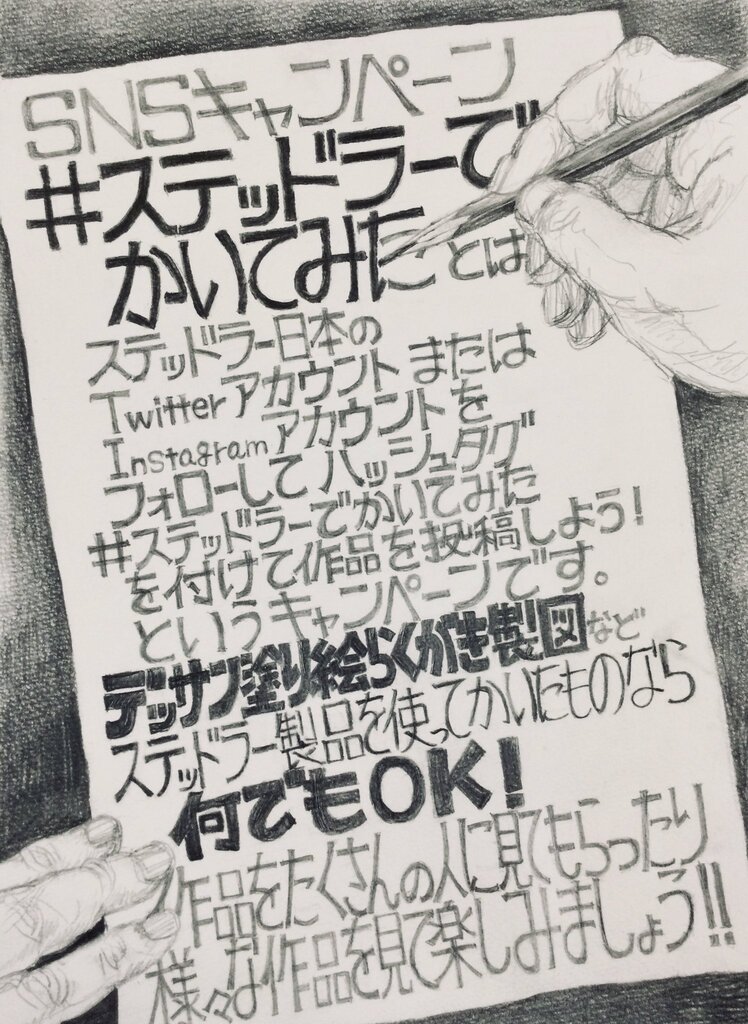 SNSキャンペーン
#ステッドラーで
かいてみたとは
ステッドラー日本の
Twitterアカウントまたは
Instagramアカウントを
フォローしてハッシュタグ
#ステッドラーでかいてみた
を付けて作品を投稿しよう!
というキャンペーンです。
デッサン塗り絵らくがき製図など
ステッドラー製品を使ってかいたものなら
何でもOK!
作品をたくさんの人に見てもらったり
様々な作品を見て楽しみましょう!!